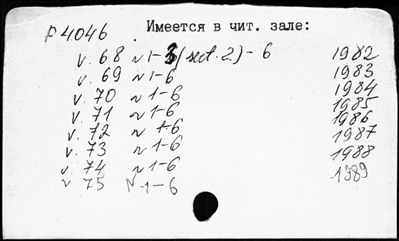 P 4046 Имеется в чит. зале:
v. 68 n 1-3 (sect. 2) - 6 1982
v. 69 n 1-6 1983
v. 70 n 1-6 1984
v. 71 n 1-6 1985
v. 72 n 1-6 1986
v. 73 n 1-6 1987
v. 74 n 1-6 1988
v 75 N 1-6 1989